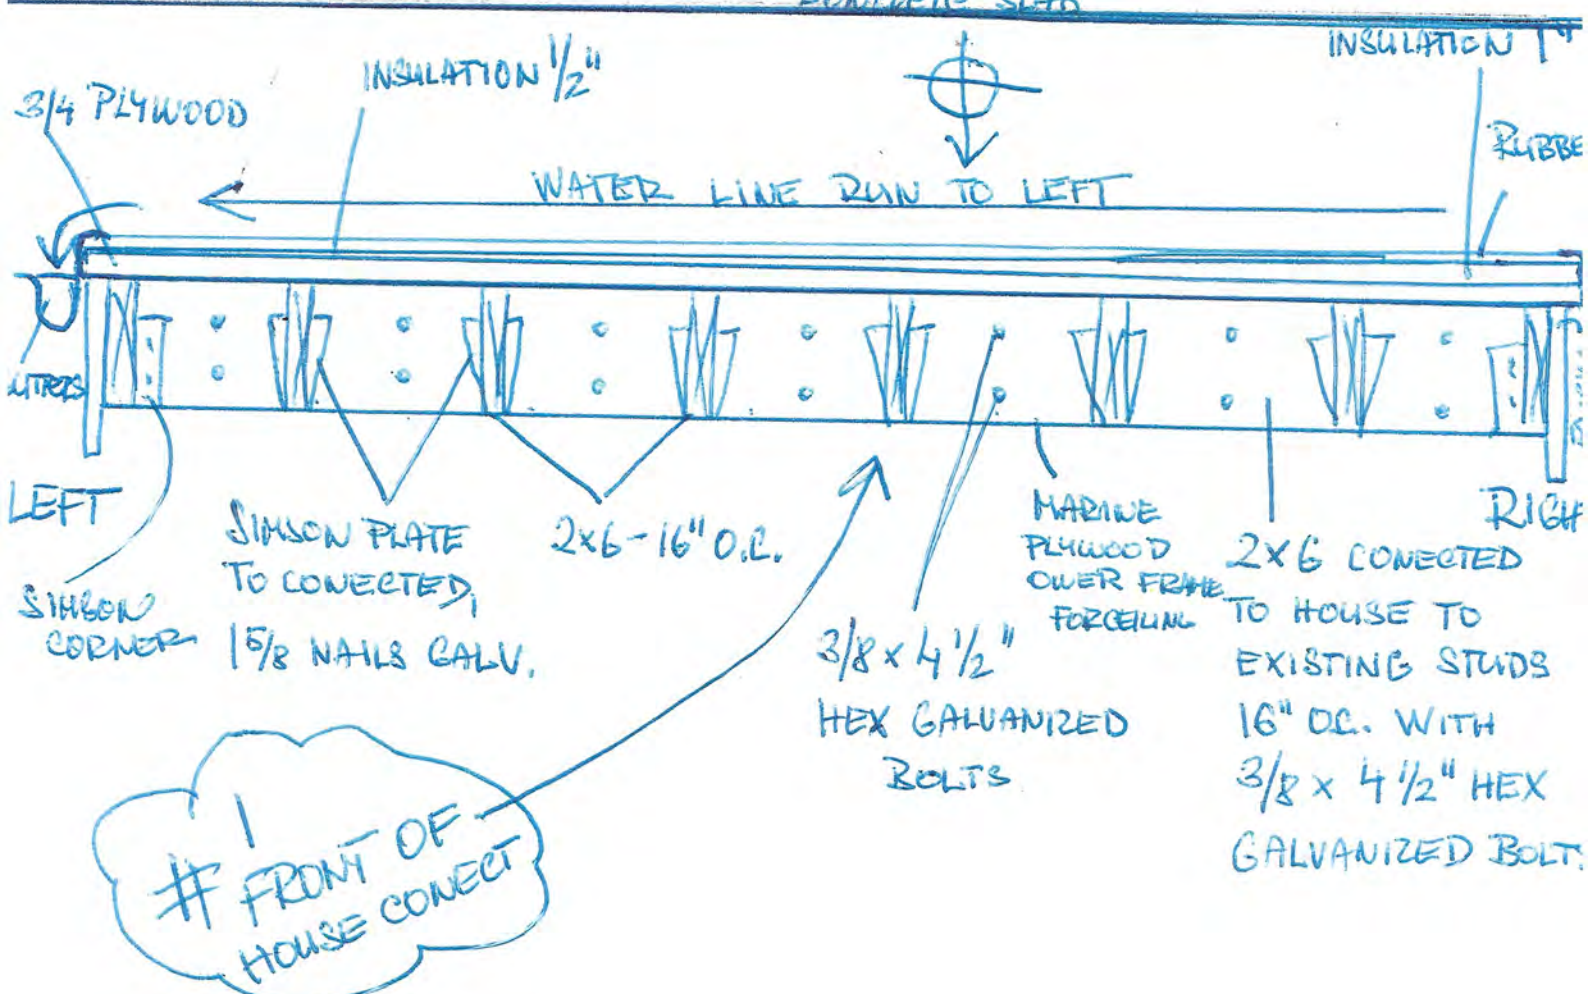 CONCRETE SLAB
INSULATION 1"
INSULATION 1/2"
3/4 PLYWOOD
RUBBE
WATER LINE RUN TO LEFT
UTTERS
LEFT
RIGH
SIMSON PLATE
TO CONECTED,
1 5/8 NAILS GALV.
2x6-16" O.C.
MARINE
PLYWOOD
OVER FRAME
FOR CEILING
2x6 CONECTED
TO HOUSE TO
EXISTING STUDS
16" O.C. WITH
3/8 x 4 1/2" HEX
GALVANIZED BOLTS
SIMSON
CORNER
3/8 x 4 1/2"
HEX GALVANIZED
BOLTS
#1
FRONT OF
HOUSE CONECT